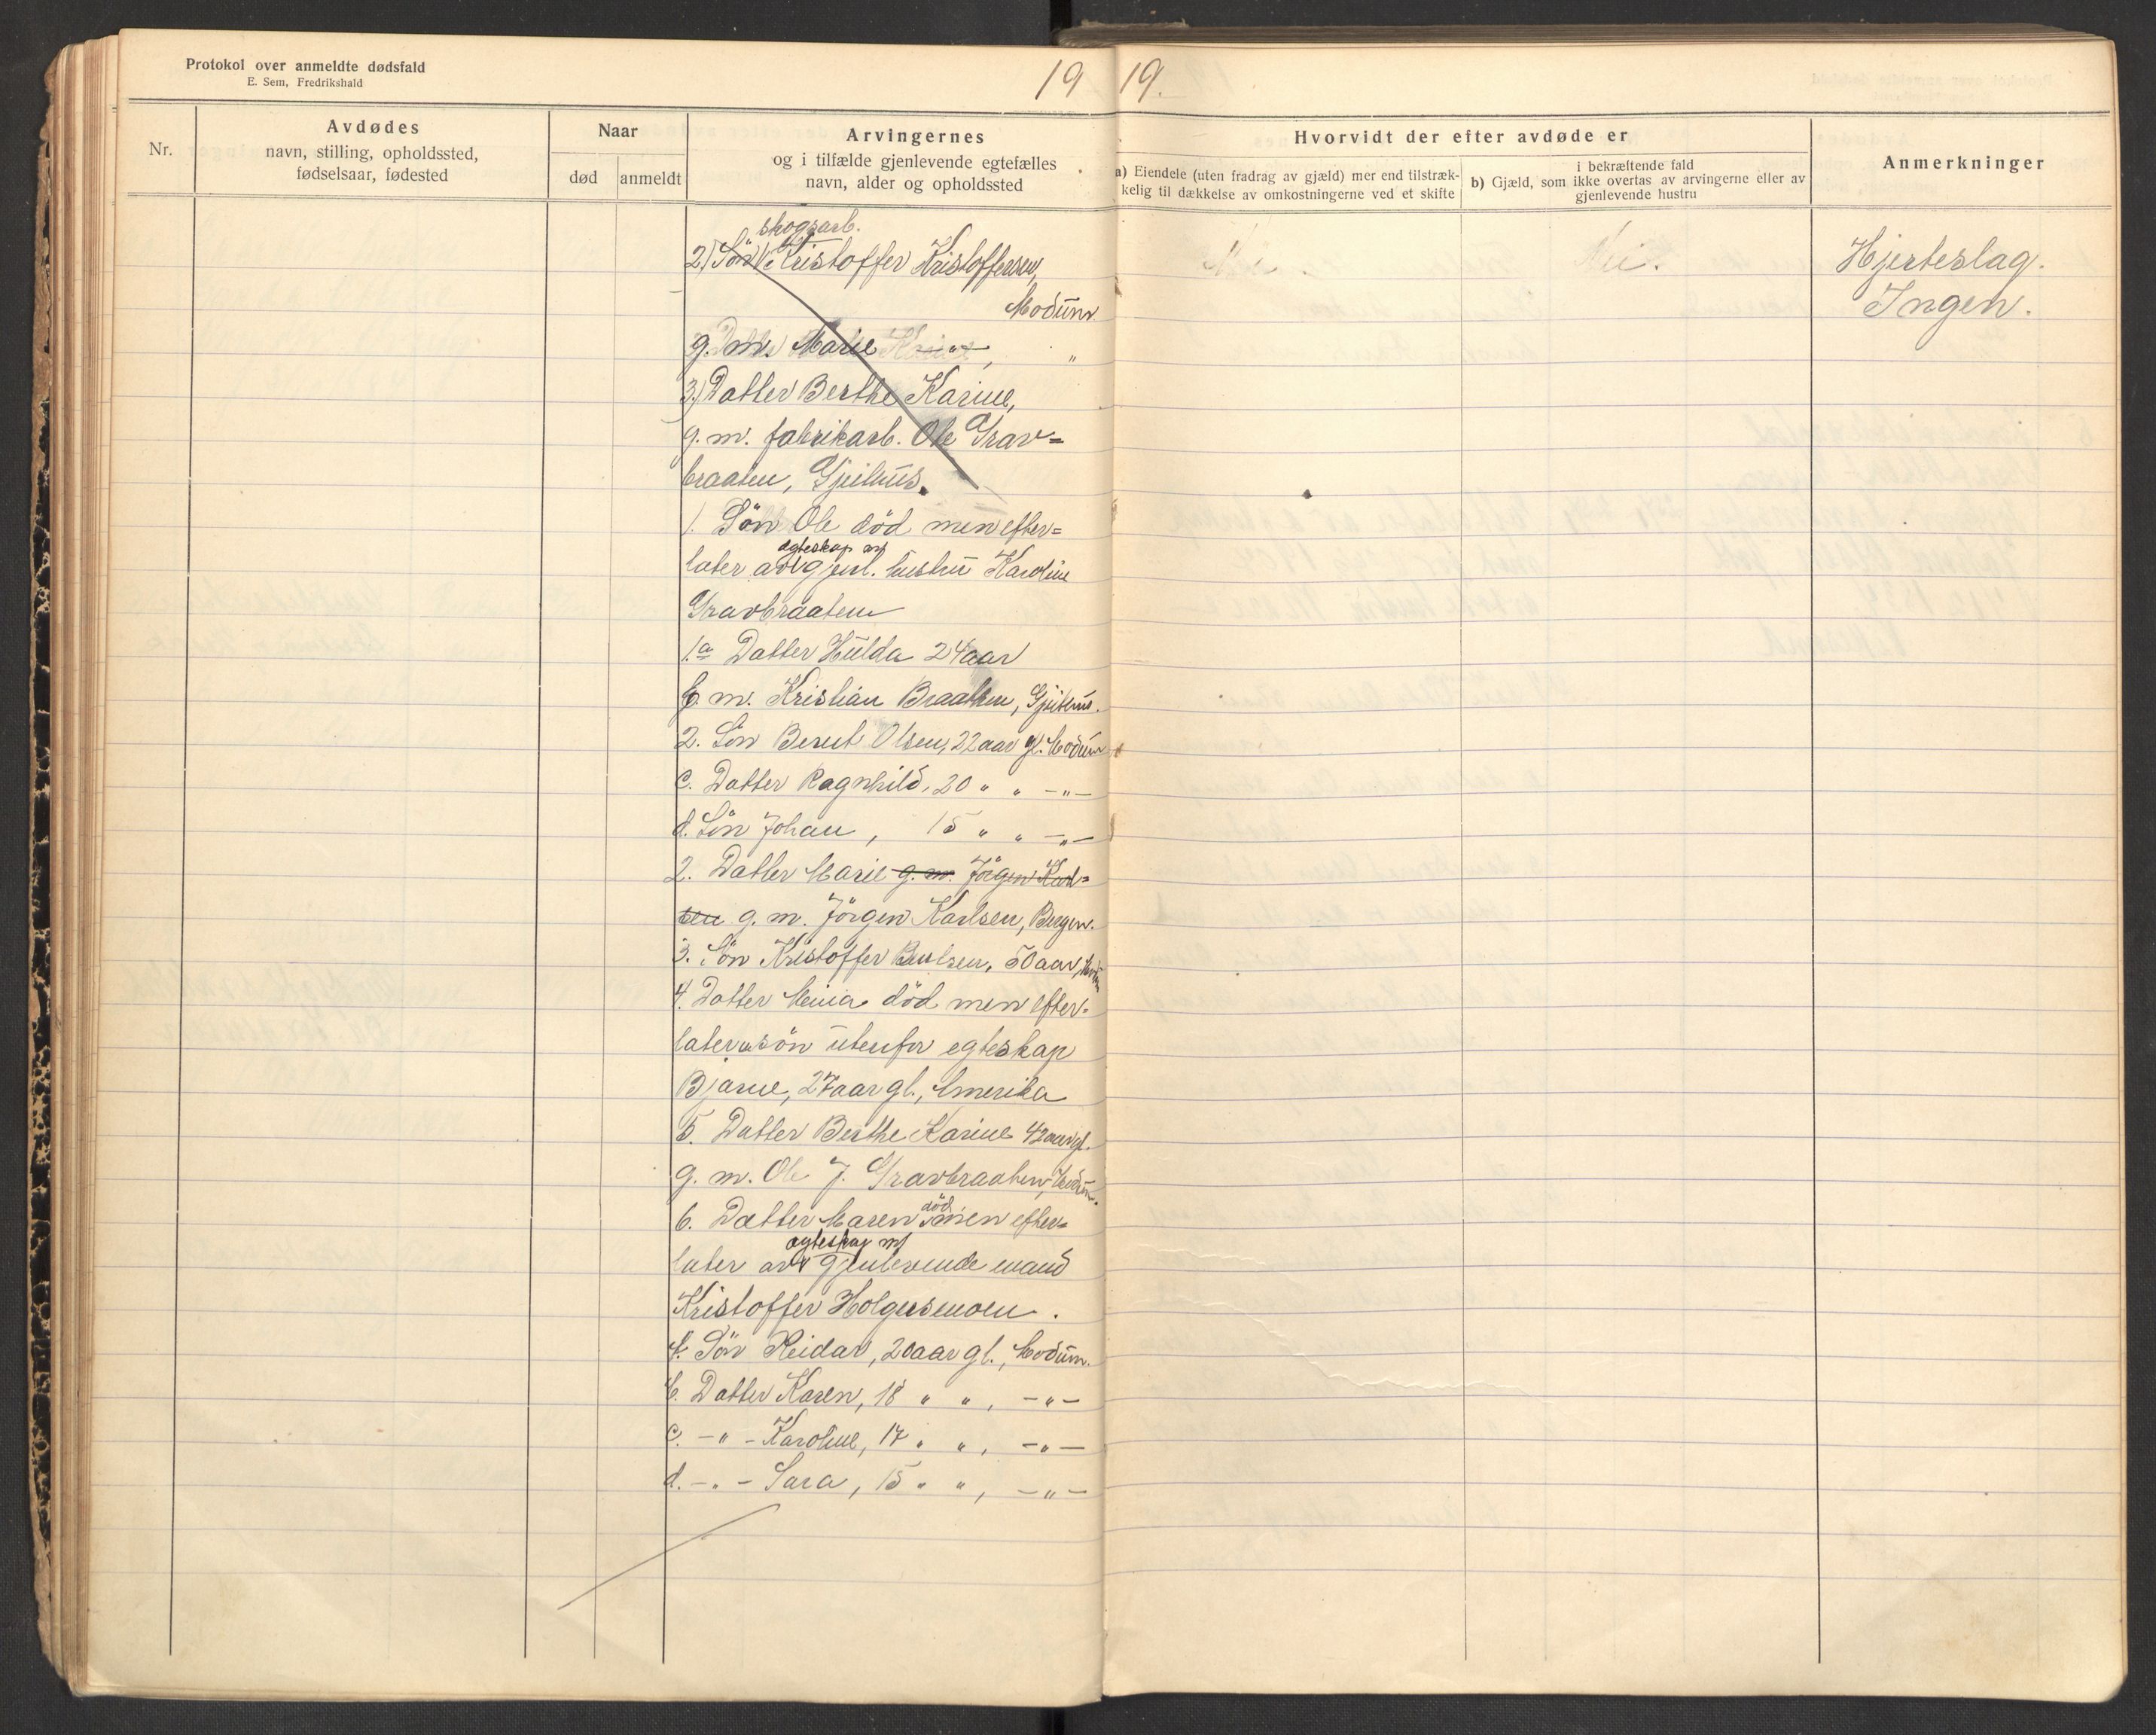 Protokol over anmeldte dødsfald
E. Sem, Fredrikshald
19
19.
Nr.
Avdødes
navn, stilling, opholdssted,
fødselsaar, fødested
Naar
død
anmeldt
Arvingernes
og i tilfælde gjenlevende egtefælles
navn, alder og opholdssted
Hvorvidt der efter avdøde er
a) Eiendele (uten fradrag av gjæld) mer end tilstræk-
kelig til dækkelse av omkostningerne ved et skifte
i bekræftende fald
b) Gjæld, som ikke overtas av arvingerne eller av
gjenlevende hustru
Anmerkninger
skogsarb.
2) Sön Kristoffer Kristoffersen,
Modum
g. m. Marie , "
3) Datter Berthe Karine,
g. m. fabrikarb. Ole Grav=
braaten, Gjeithus.
1. Sön Ole död men efter=
egteskap m/
later av gjenl. hustru Karoline
Gravbraaten
1.a Datter Hulda 24 aar
g. m. Kristian Braathen, Gjeithus.
2. Sön Bernt Olsen, 22 aar gl. Modum
c. Datter Ragnhild, 20 " " -"-
d. Sön Johan, 15 " " -"-
2. Datter Marie g. m. Jörgen Karl=
sen g. m. Jörgen Karlsen, Bergen.
3. Sön Kristoffer Berntsen, 50 aar, Modum
4. Datter Mina död men efter=
later sön utenfor egteskap
Bjarne, 27 aar gl., Amerika
5. Datter Berthe Karine 42 aar gl.
g. m. Ole J. Gravbraathen, Modum.
död
6. Datter Maren men efter=
egteskap m/
later av gjenlevende mand
Kristoffer Holgersmoen.
Sön Reidar, 20 aar gl., Modum.
b. Datter Karen, 18 " ", -"-
c. -"- Karoline, 17 " ", -"-
d. -"- Sara, 15 " ", -"-
Nei.
Nei.
Hjerteslag.
Ingen.